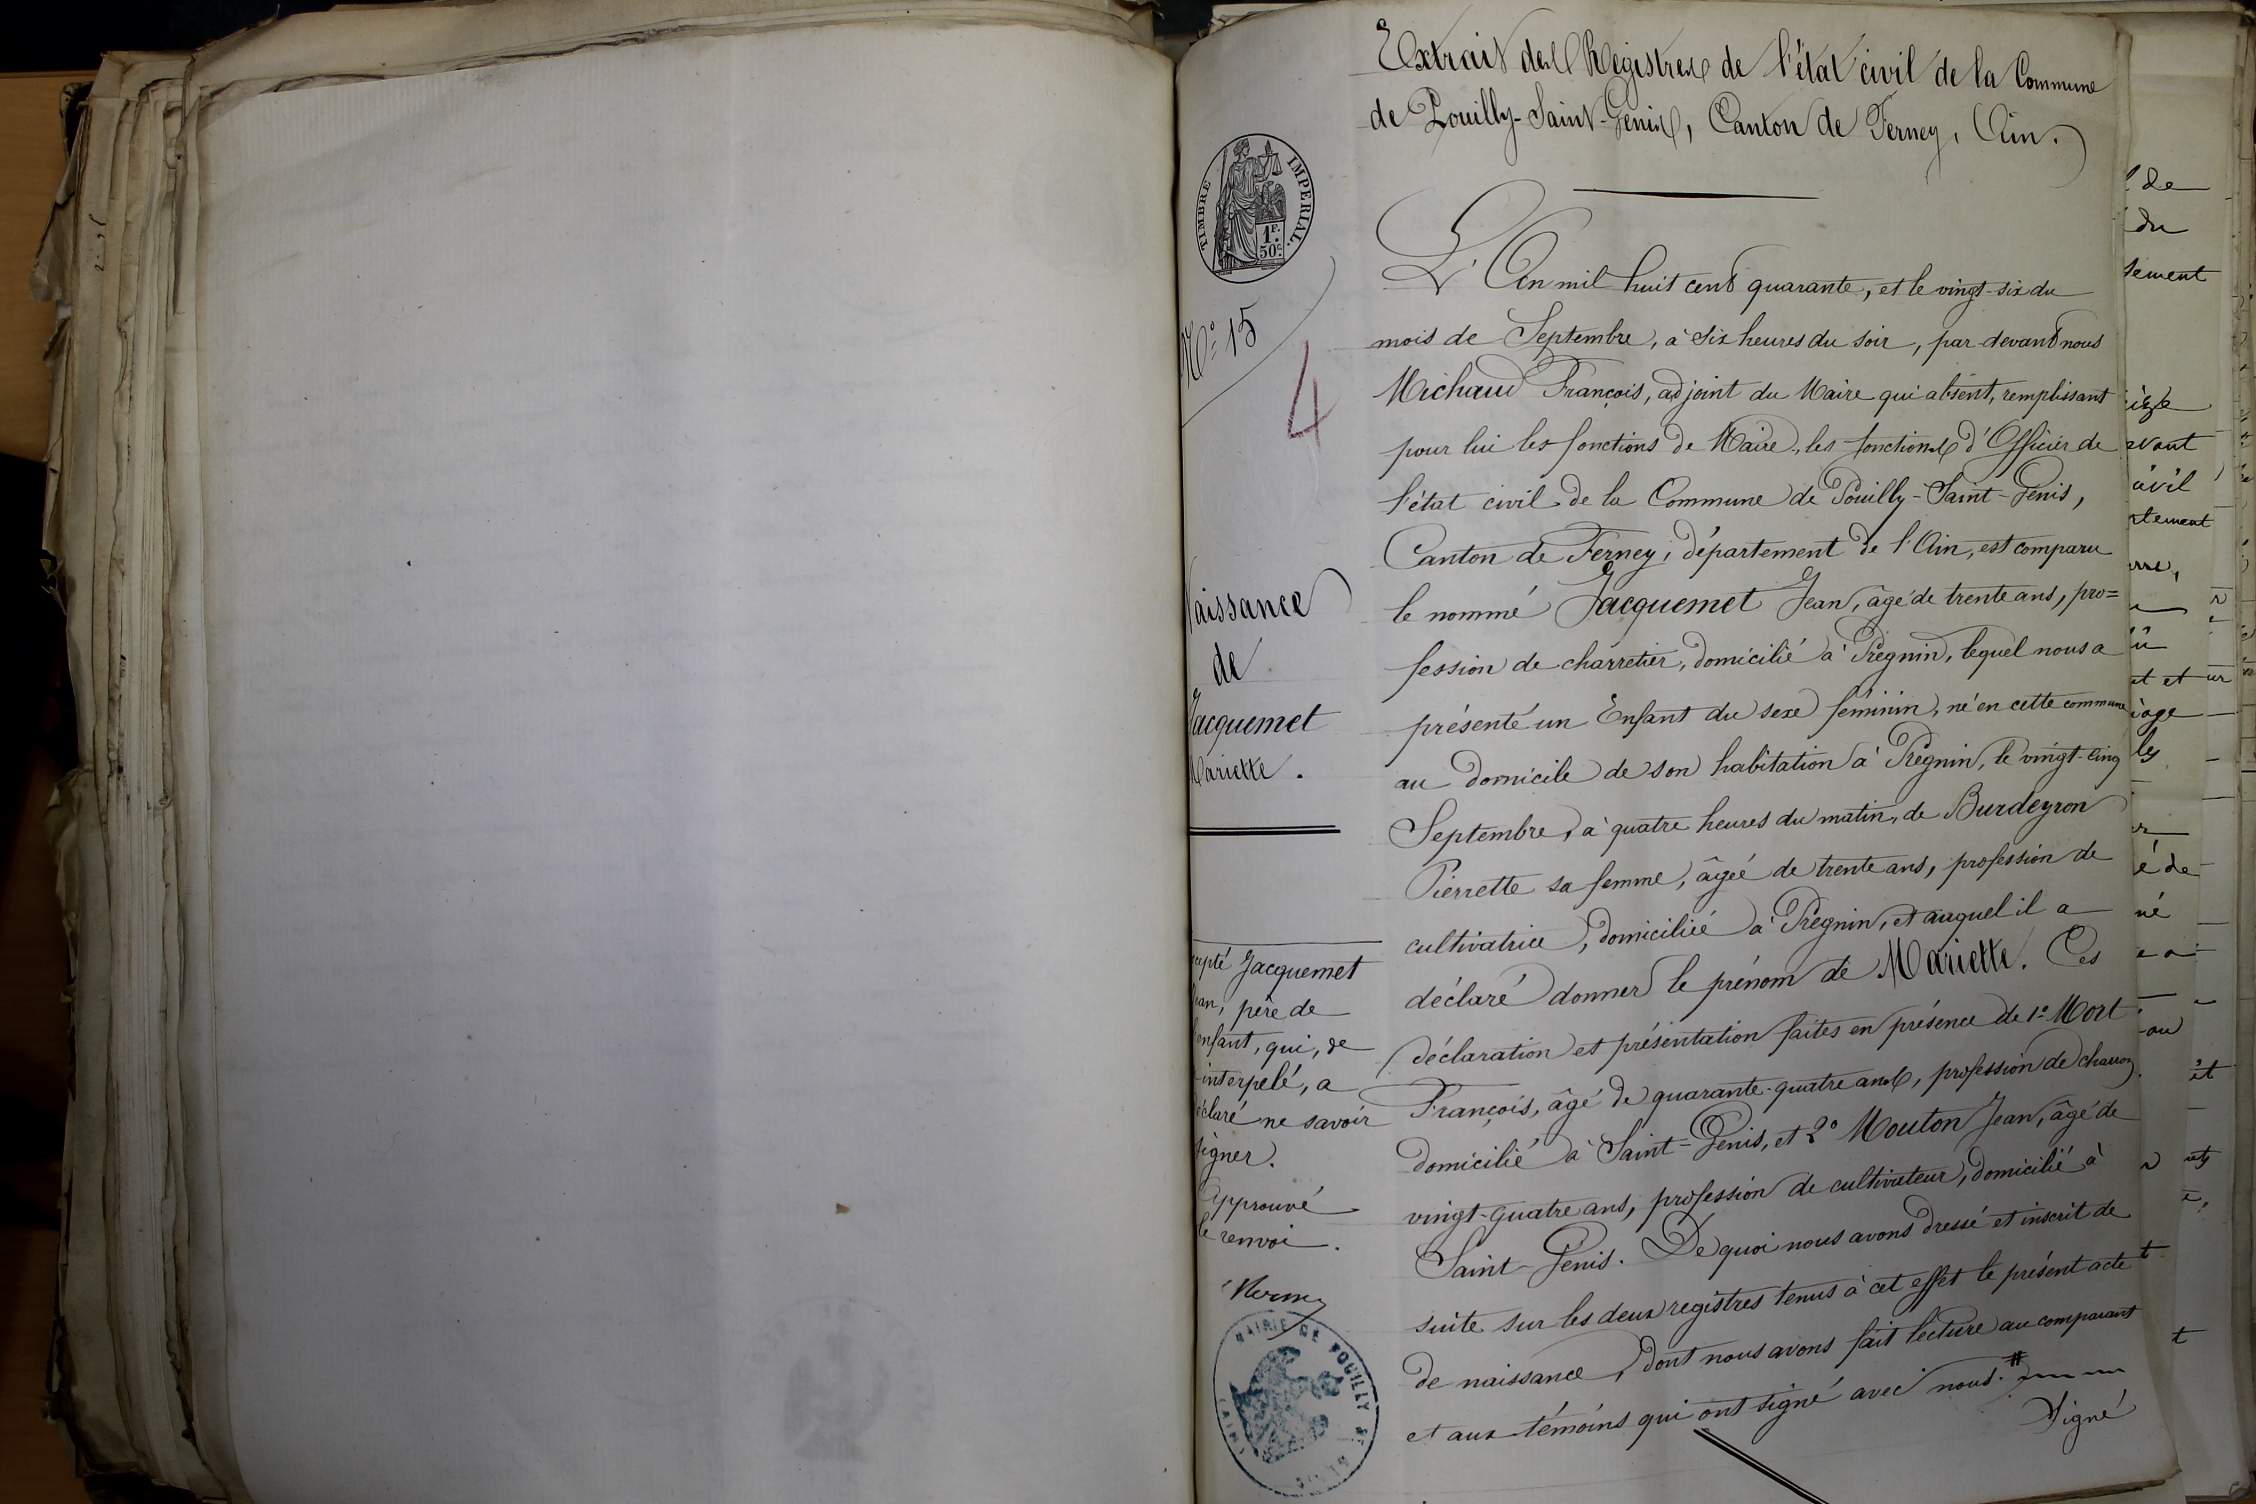 Extrait des Registres de l'état civil de la Commune
de Pouilly-Saint-Genis, Canton de Ferney, Ain.
TIMBRE IMPERIAL.
1F.
50c.
N.º 15
4
L'An mil huit cent quarante, et le vingt-six du
mois de Septembre, à six heures du soir, par-devant nous
Michaud François, adjoint du Maire qui absent, remplissant
pour lui les fonctions de Maire, les fonctions d'Officier de
l'état civil de la Commune de Pouilly-Saint-Genis,
Canton de Ferney, département de l'Ain, est comparu
le nommé Jacquemet Jean, âgé de trente ans, pro=
fession de charretier, domicilié à Prégnin, lequel nous a
présenté un Enfant du sexe féminin, né en cette commune
au domicile de son habitation à Prégnin, le vingt-cinq
Septembre, à quatre heures du matin, de Burdeyron
Pierrette sa femme, âgée de trente ans, profession de
cultivatrice, domiciliée à Prégnin, et auquel il a
déclaré donner le prénom de Mariette. Ces
déclaration et présentation faites en présence de 1º Mort
François, âgé de quarante-quatre ans, profession de charron,
domicilié à Saint-Genis, et 2º Mouton Jean, âgé de
vingt-quatre ans, profession de cultivateur, domicilié à
Saint-Genis. De quoi nous avons dressé et inscrit de
suite sur les deux registres tenus à cet effet le présent acte
de naissance, dont nous avons fait lecture au comparant
et aux témoins qui ont signé avec nous. #
Signé
Naissance
de
Jacquemet
Mariette.
cepté Jacquemet
Jean, père de
l'enfant, qui, de
interpelé, a
déclaré ne savoir
signer.
Approuvé
le renvoi.
MAIRIE DE POUILLY ST GENIS
(AIN)
de
du
sement
vant
civil
rtement
et et
les
é de
né